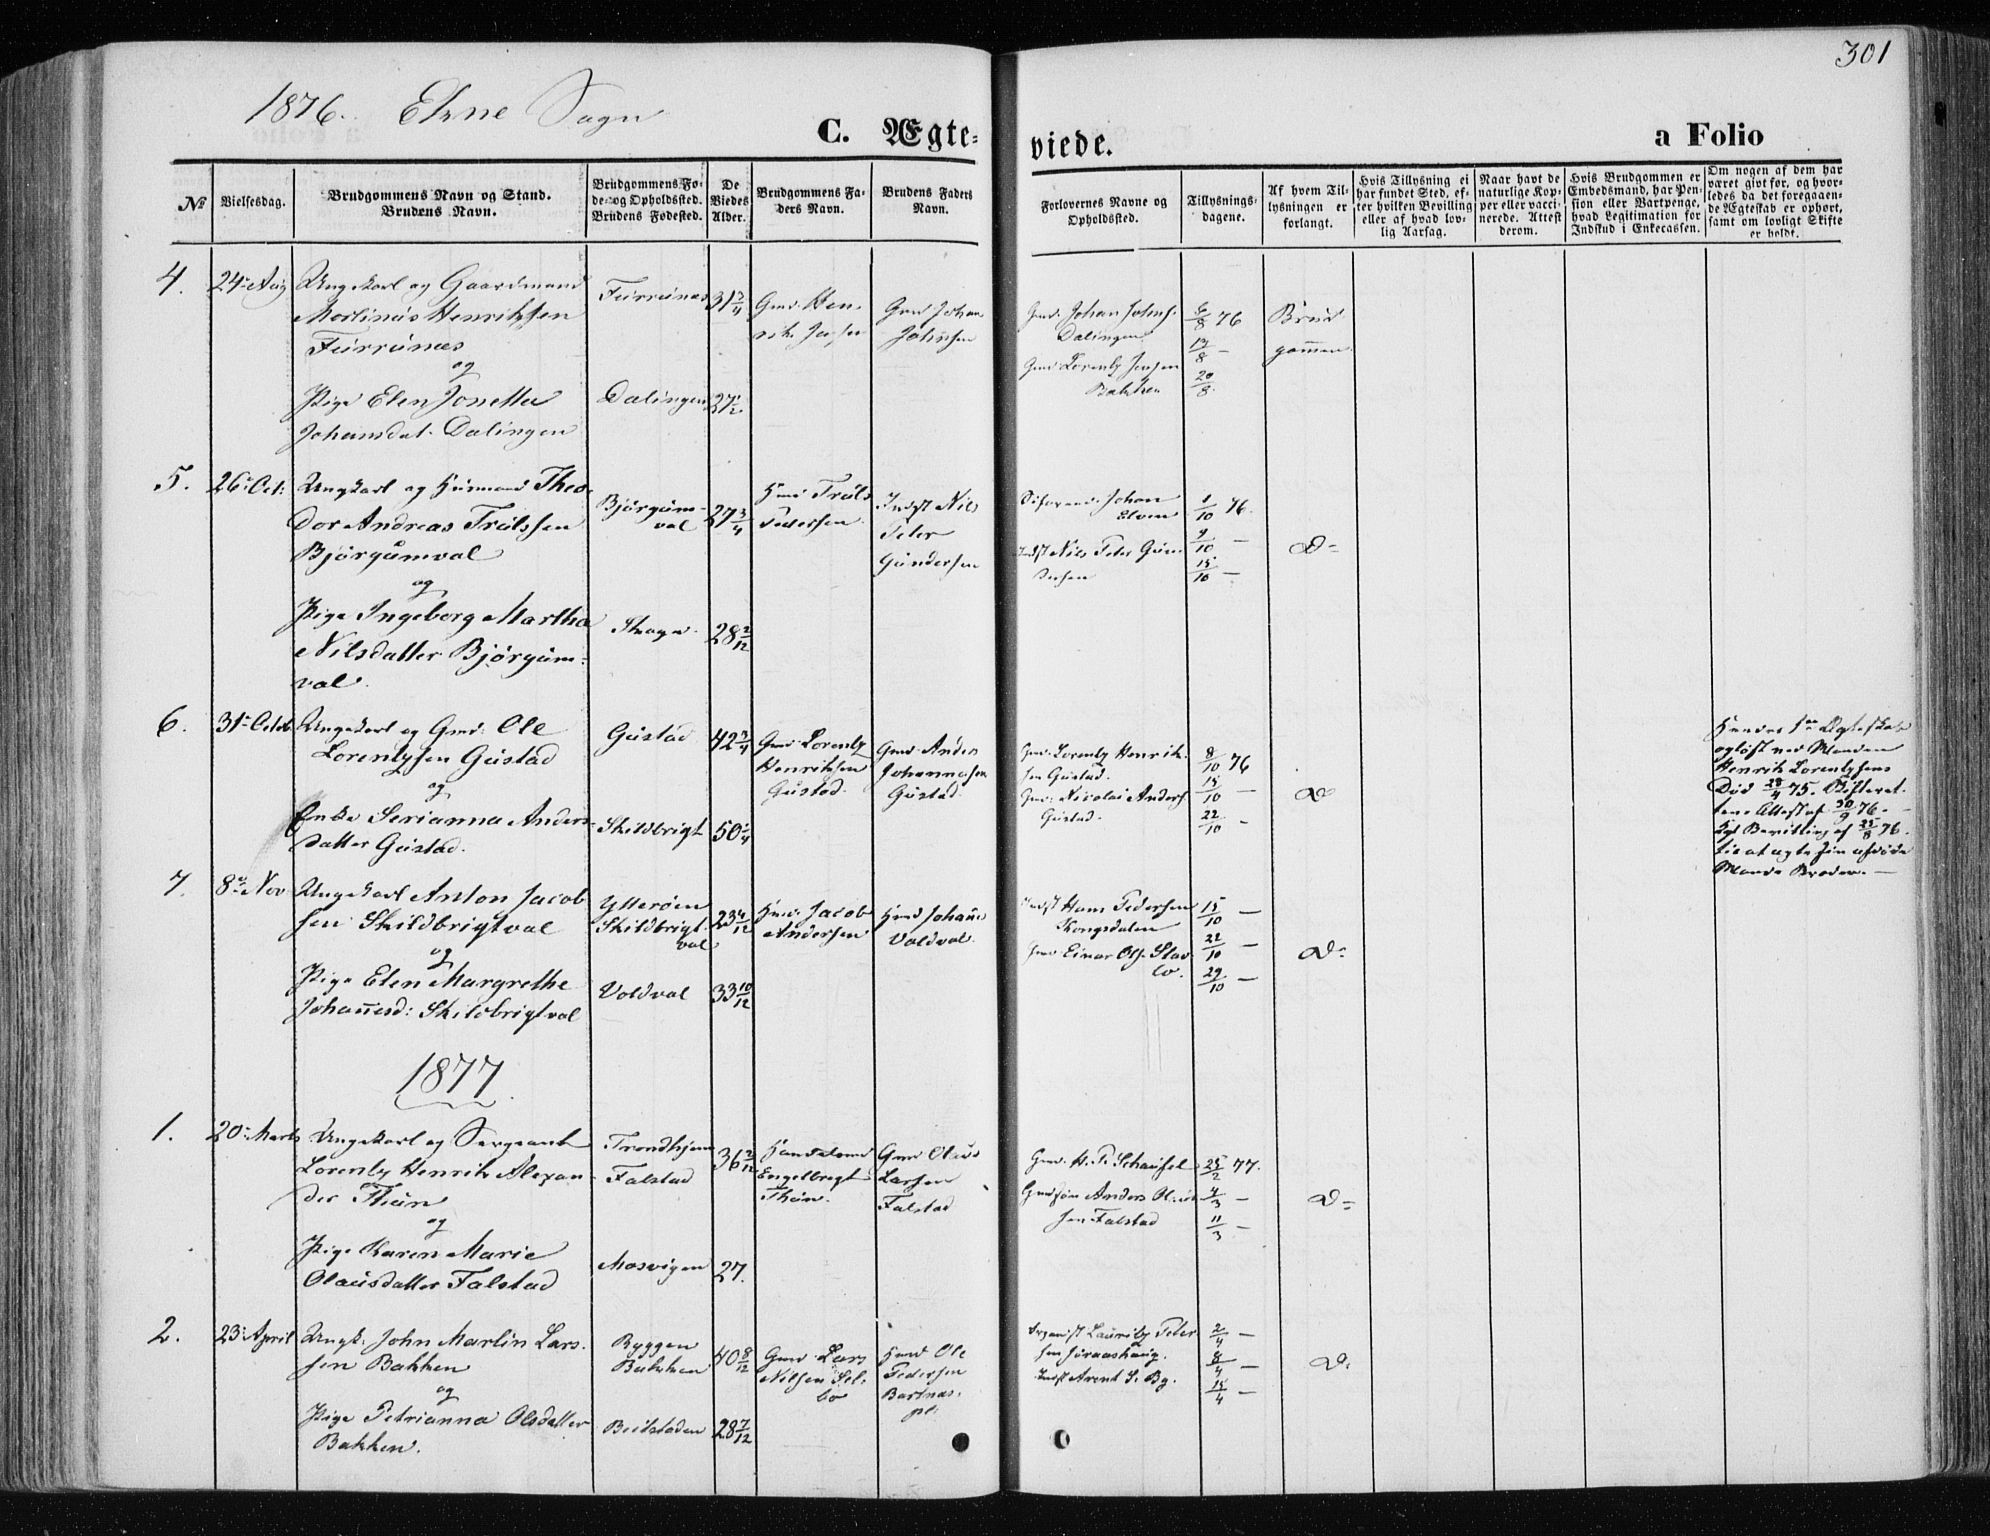 301
1876. Ekne Sogn
C. Ægte-
viede.
a Folio
№
Vielsesdag.
Brudgommens Navn og Stand.
Brudens Navn.
Brudgommens Fø-
de- og Opholdssted.
Brudens Fødested.
De
Viedes
Alder.
Brudgommens Fa-
ders Navn.
Brudens Faders
Navn.
Forlovernes Navne og
Opholdssted.
Tillysnings-
dagene.
Af hvem Til-
lysningen er
forlangt.
Hvis Tillysning ei
har fundet Sted, ef-
ter hvilken Bevilling
eller af hvad lov-
lig Aarsag.
Naar havt de
naturlige Kop-
per eller vacci-
nerede. Attest
derom.
Hvis Brudgommen er
Embedsmand, har Pen-
sion eller Vartpenge,
hvad Legitimation for
Indskud i Enkecassen.
Om nogen af dem har
været givt før, og hvor-
ledes da det foregaaen-
de Ægteskab er ophørt,
samt om lovligt Skifte
er holdt.
4.
24 Aug
Ungekarl og Gaardmand
Martinus Henriksen
Furrunes
og
Pige Elen Jonetta
Johansdat. Dalingen
Furrunes
Dalingen
31 3/4
27 1/2
Gmd. Hen-
rik
Gmd Johan
Johnsen
Gmd. Johan Johns.
Dalingen
Gmd Lorentz Jensen
Bakken
6/8 76
13/8 -
20/8.
Brud
gommen.
5.
26 Oct:
Ungkarl og Husmand Theo-
dor Andreas Trulssen
Bjørgumval
og
Pige Ingeborg Martha
Nilsdatter Bjørgum-
val.
Bjørgum-
val
Skogn.
27 3/4
28 2/12
Hmd Truls
Pedersen
Indst Nils
Peter
Gundersen
Johan
Elven
Indst Nils Peter Gun-
dersen
1/10 76.
9/10 -
15/10 -
D=
6.
31 Octob
Ungekarl og Gmd. Ole
Lorentzsen Gustad
og
Enke Serianna Anders-
datter Gustad.
Gustad
Skildbrigt
42 3/4
50 1/4
Gmd Lorentz
Henriksen
Gustad.
Gmd Anders
Johannesen
Gustad.
Gmd. Lorentz Henrik-
sen Gustad.
Gmd. Nicolai Anders.
Gustad.
8/10 76
15/10 -
22/10 -
D
Hendes 1ste Ægteskab
opløst ved Manden
Henrik Lorentzsens
Død 28/4 75. Skifteret-
tens Attest af 30/9 76. -
Kgl Bevilling af 25/8 76.
til at ægte sin afdøde
Mands Broder. -
7.
8 Nov
Ungekarl Anton Jacob-
sen Skildbrigtval
og
Pige Elen Margrethe
Johannesd: Skildbrigtval
Ytterøen
Skildbrigt
val
Voldval
23 4/12
33 10/12
Hmd. Jacob
Andersen
Hmd Johannes
Voldval.
Indst Hans Pedersen
Kongsdalen
Gmd Einar Ols. Slav-
bo.
15/10 -
22/10 -
29/10 -
D=
1877.
1.
20 Marts
Ungekarl og Sergeant
Lorentz Henrik Alexan-
der Thun
og
Pige Karen Marie
Olausdatter Falstad
Trondhjem
Falstad
Mosvigen
36 2/12
27.
Handelsmd
Engelbregt
Thun.
Gmd Olaus
Larsen
Falstad
Gmd. H. P. Schausel
Gmdsøn Anders Olaus-
sen Falstad
25/2 77.
4/3 -
11/3 -
D=
2.
23 April
Ungk. John Martin Lars-
sen Bakken
og
Pige Petrianna Olsdatter
Bakken.
Byggen
Bakken
Beitstaden
40 8/12
28 7/12
Gmd Lars
Nilsen Sel-
bo
Hmd Ole
Pedersen
Bartnas-
pl.
Organist Lauritz Peter-
sen
Indst Arent S. By.
2/4 -
8/4 -
15/4 -
D=